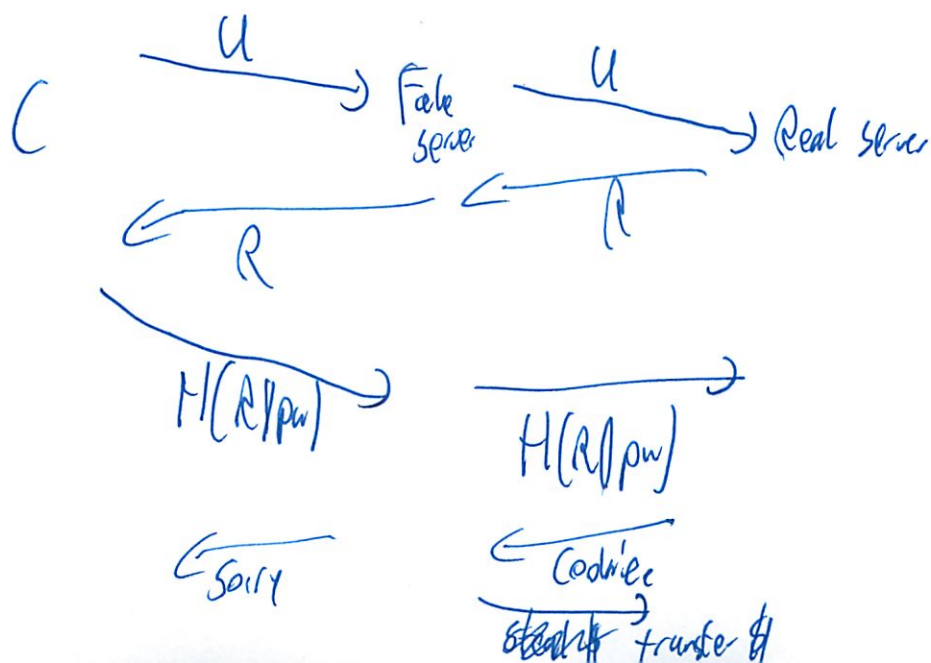 U
U
C
Fake
server
Real server
R
R
H(R||pw)
H(R||pw)
Sorry
Cookie
transfer $